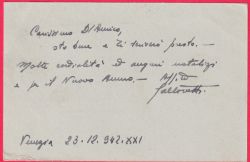 Carissimo D'Amico,
sto bene e Ti scriverò presto. —
Molte cordialità ed auguri natalizi
e per il Nuovo Anno. — Aff.mo
Venezia 23.12.942.XXI